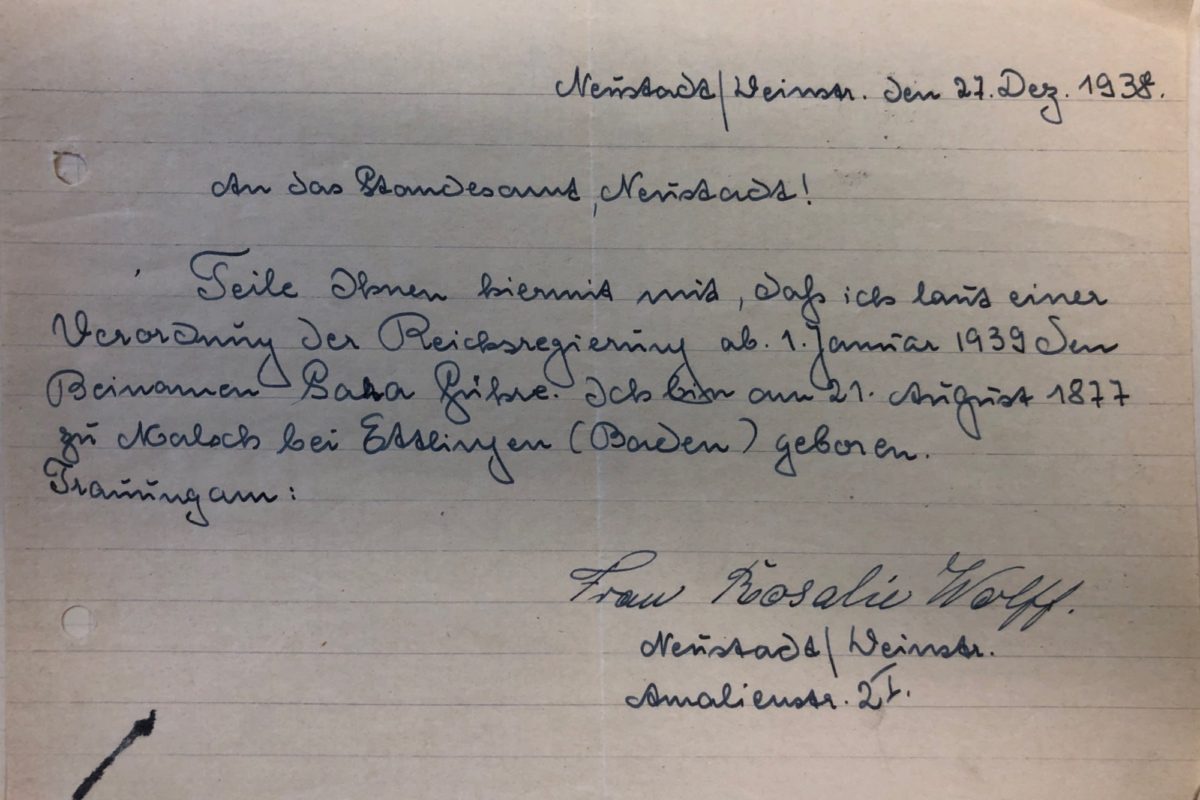 Neustadt/Weinstr. den 27. Dez. 1938.
An das Standesamt, Neustadt!
Teile Ihnen hiermit mit, daß ich laut einer
Verordnung der Reichsregierung ab. 1. Januar 1939 den
Beinamen Sara führe. Ich bin am 21. August 1877
zu Malsch bei Ettlingen (Baden) geboren.
Trauung am:
Frau Rosalie Wolff.
Neustadt/Weinstr.
Amalienstr. 2I.